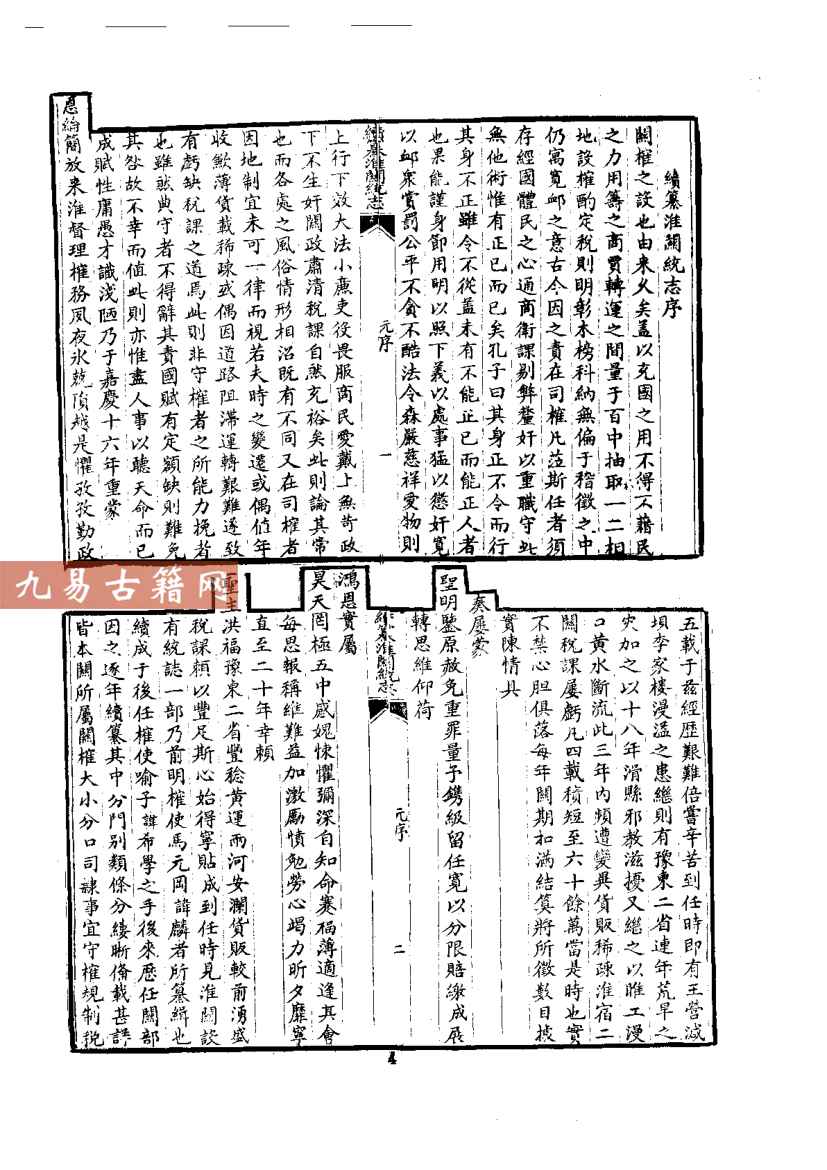 續纂淮關統志序
關榷之設也由來久矣蓋以充國之用不得不藉民
之力用籌之商賈轉運之間量于百中抽取一二相
地設榷酌定稅則明彰木榜科納無偏于稽徵之中
仍寓寬邮之意古今因之責在司榷凡蒞斯任者須
存經國體民之心通商衛課剔弊釐奸以重職守此
無他術惟有正已而已矣孔子曰其身正不令而行
其身不正雖令不從蓋未有不能正已而能正人者
也果能謹身節用明以照下義以處事猛以懲奸寬
以邮衆賞罰公平不貪不酷法令森嚴慈祥愛物則
續纂淮關統志
元序
一
上行下效大法小亷吏役畏服商民愛戴上無苛政
下不生奸關政肅清稅課自然充裕矣此則論其常
也而各處之風俗情形相沿既有不同又在司榷者
因地制宜未可一律而視若夫時之變遷或偶值年
收歉薄貨載稀疎或偶因道路阻滯運轉艱難遂致
有虧缺稅課之道焉此則非守榷者之所能力挽者
也雖然典守者不得辭其責國賦有定額缺則難免
其咎故不幸而值此則亦惟盡人事以聽天命而已
成賦性庸愚才識淺陋乃于嘉慶十六年重蒙
恩綸簡放来淮督理榷務夙夜氷兢頂越是懼孜孜勤政
五載于兹經歷艱難倍嘗辛苦到任時即有王營減
壩李家樓漫溢之患繼則有豫東二省連年荒旱之
灾加之以十八年滑縣邪教滋擾又繼之以睢工漫
口黄水斷流此三年内頻遭變異貨販稀疎淮宿二
關稅課屢虧凡四載積短至六十餘萬當是時也實
不禁心胆俱落每年關期扣滿結算將所徵數目披
實陳情具
奏屢蒙
聖明鑒原赦免重罪量予鐫級留任寛以分限賠繳成展
轉思維仰荷
續纂淮關統志
元序
二
鴻恩實屬
昊天罔極五中感媿悚懼彌深自知命蹇福薄適逢其會
每思報稱維難益加激厲憤勉勞心竭力昕夕靡寧
直至二十年幸賴
聖主洪福豫東二省豐稔黄運兩河安瀾貨販較前湧盛
稅課頼以豐足斯心始得寧貼成到任時見淮關設
有統誌一部乃前明榷使馬元岡諱麟者所纂緝也
續成于後任榷使喻子諱希學之手後來歷任關部
因之逐年續纂其中分門別類條分縷晰俻載甚詳
皆本關所屬關榷大小分口司隸事宜守榷規制稅
4
九易古籍网